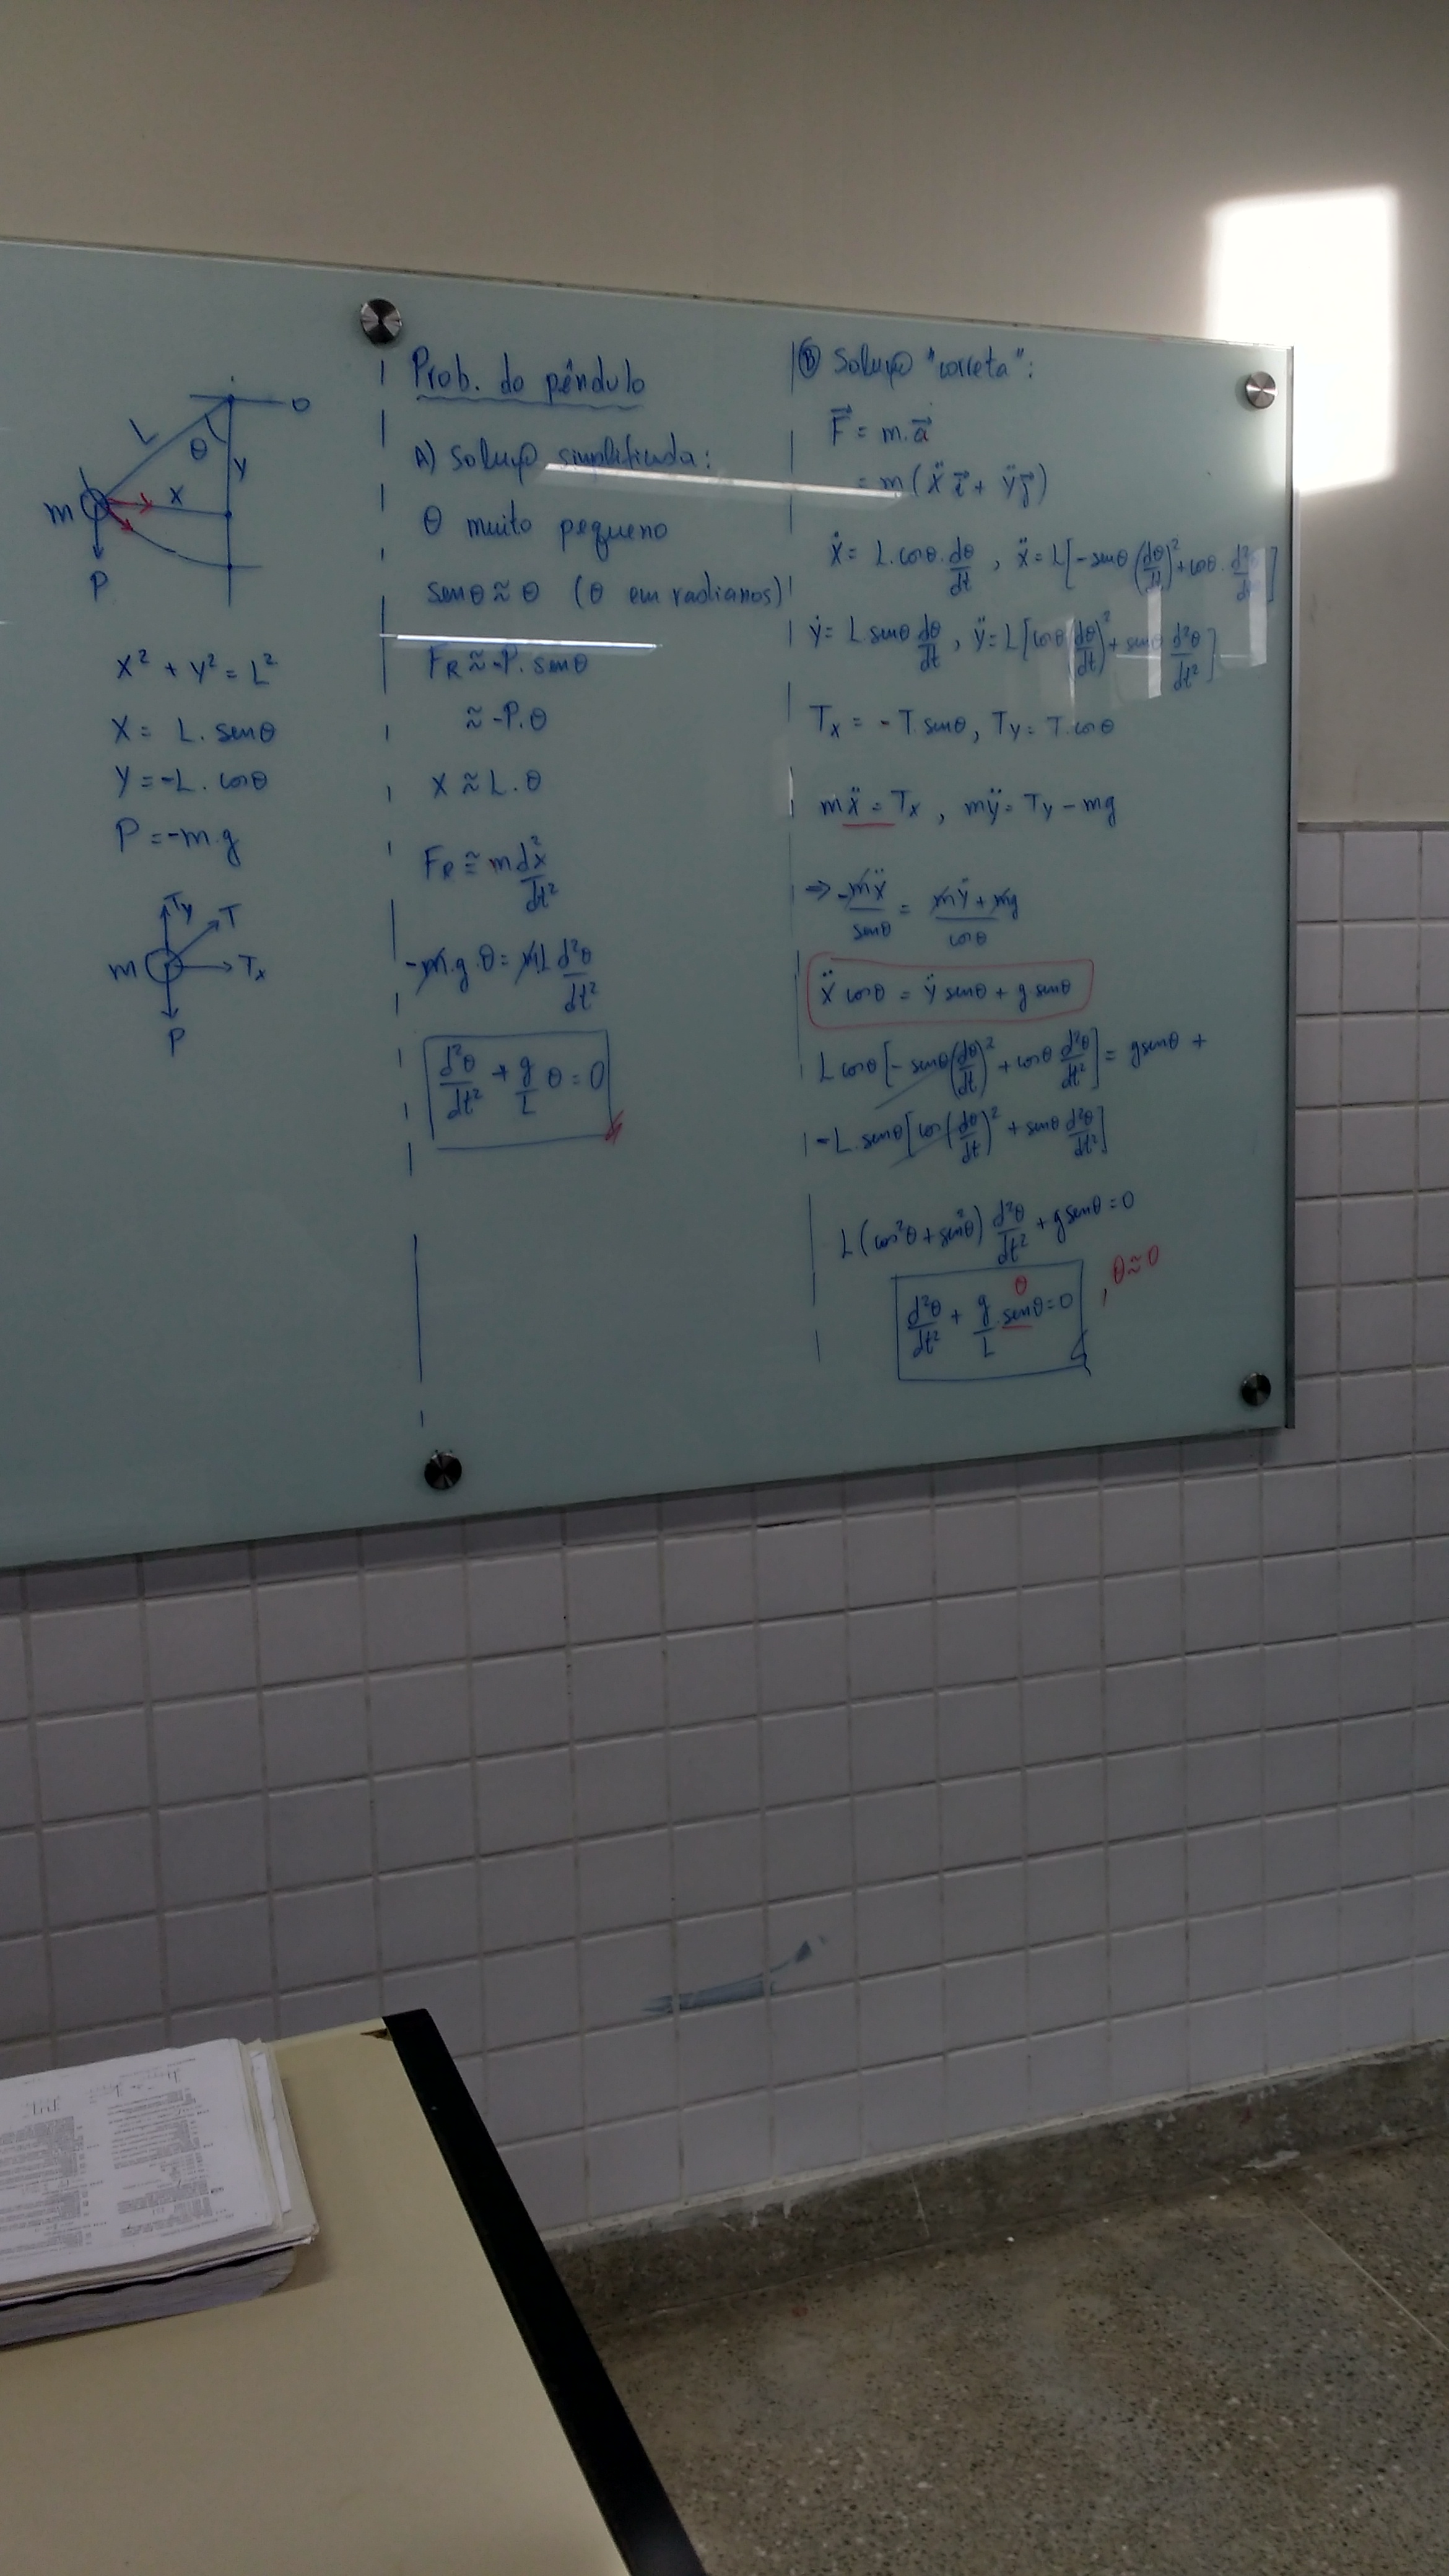 O
L
θ
y
x
m
P
x² + y² = L²
x = L. senθ
y = -L. cosθ
P = -m.g
Ty
T
m
Tx
P
Prob. do pêndulo
A) Solução simplificada:
θ muito pequeno
senθ ≈ θ (θ em radianos)
FR ≈ -P. senθ
≈ -P.θ
x ≈ L.θ
FR ≅ m d²x/dt²
-m.g.θ = mL d²θ/dt²
d²θ/dt² + g/L θ = 0
B) Solução "correta":
F⃗ = m.a⃗
= m(ẍ i⃗ + ÿ j⃗)
ẋ = L.cosθ.dθ/dt , ẍ = L[-senθ(dθ/dt)² + cosθ.d²θ/dt²]
ẏ = L senθ dθ/dt , ÿ = L[cosθ(dθ/dt)² + senθ d²θ/dt²]
Tx = -T.senθ, Ty = T.cosθ
mẍ = Tx , mÿ = Ty - mg
⇒ -mẍ/senθ = mÿ + mg/cosθ
ẍ cosθ = ÿ senθ + g senθ
L cosθ[-senθ(dθ/dt)² + cosθ d²θ/dt²] = gsenθ +
-L.senθ[cos(dθ/dt)² + senθ d²θ/dt²]
L(cos²θ + sen²θ) d²θ/dt² + gsenθ = 0
θ
d²θ/dt² + g/L.senθ = 0 , θ≈0